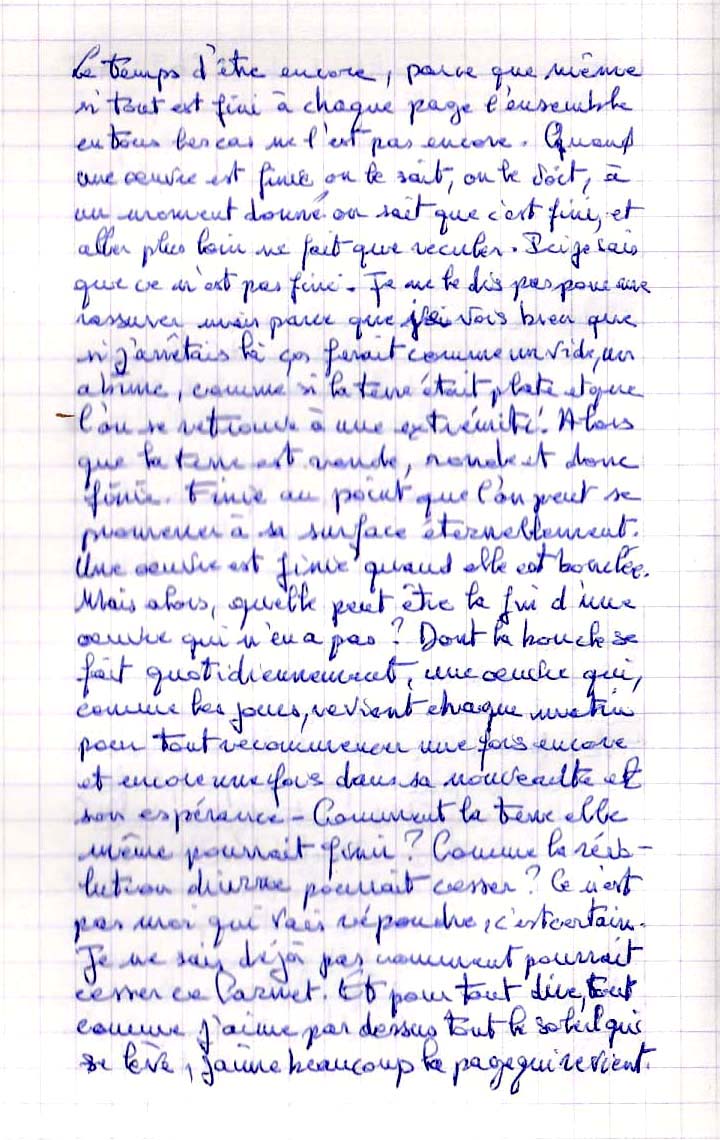 Le temps d'être encore, parce que même
si tout est fini à chaque page l'ensemble
en tous les cas ne l'est pas encore. Quand
une œuvre est finie on le sait, on le doit, à
un moment donné on sait que c'est fini, et
aller plus loin ne fait que reculer. Ici je sais
que ce n'est pas fini. Je ne le dis pas pour me
rassurer mais parce que je vois bien que
si j'arrêtais là ça ferait comme un vide, un
abîme, comme si la terre était plate et que
l'on se retrouve à une extrémité. Alors
que la terre est ronde, ronde et donc
finie. Finie au point que l'on peut se
promener à sa surface éternellement.
Une œuvre est finie quand elle est bouclée.
Mais alors, quelle peut être la fin d'une
œuvre qui n'en a pas ? Dont la boucle se
fait quotidiennement, une œuvre qui,
comme les jours, revient chaque matin
pour tout recommencer une fois encore
et encore une fois dans sa nouveauté et
son espérance - Comment la terre elle
même pourrait finir ? Comme la révo-
lution diurne pourrait cesser ? Ce n'est
pas moi qui vais répondre, c'est certain.
Je ne sais déjà pas comment pourrait
cesser ce Carnet. Et pour tout dire, tout
comme j'aime par dessus tout le soleil qui
se lève, j'aime beaucoup la page qui revient.